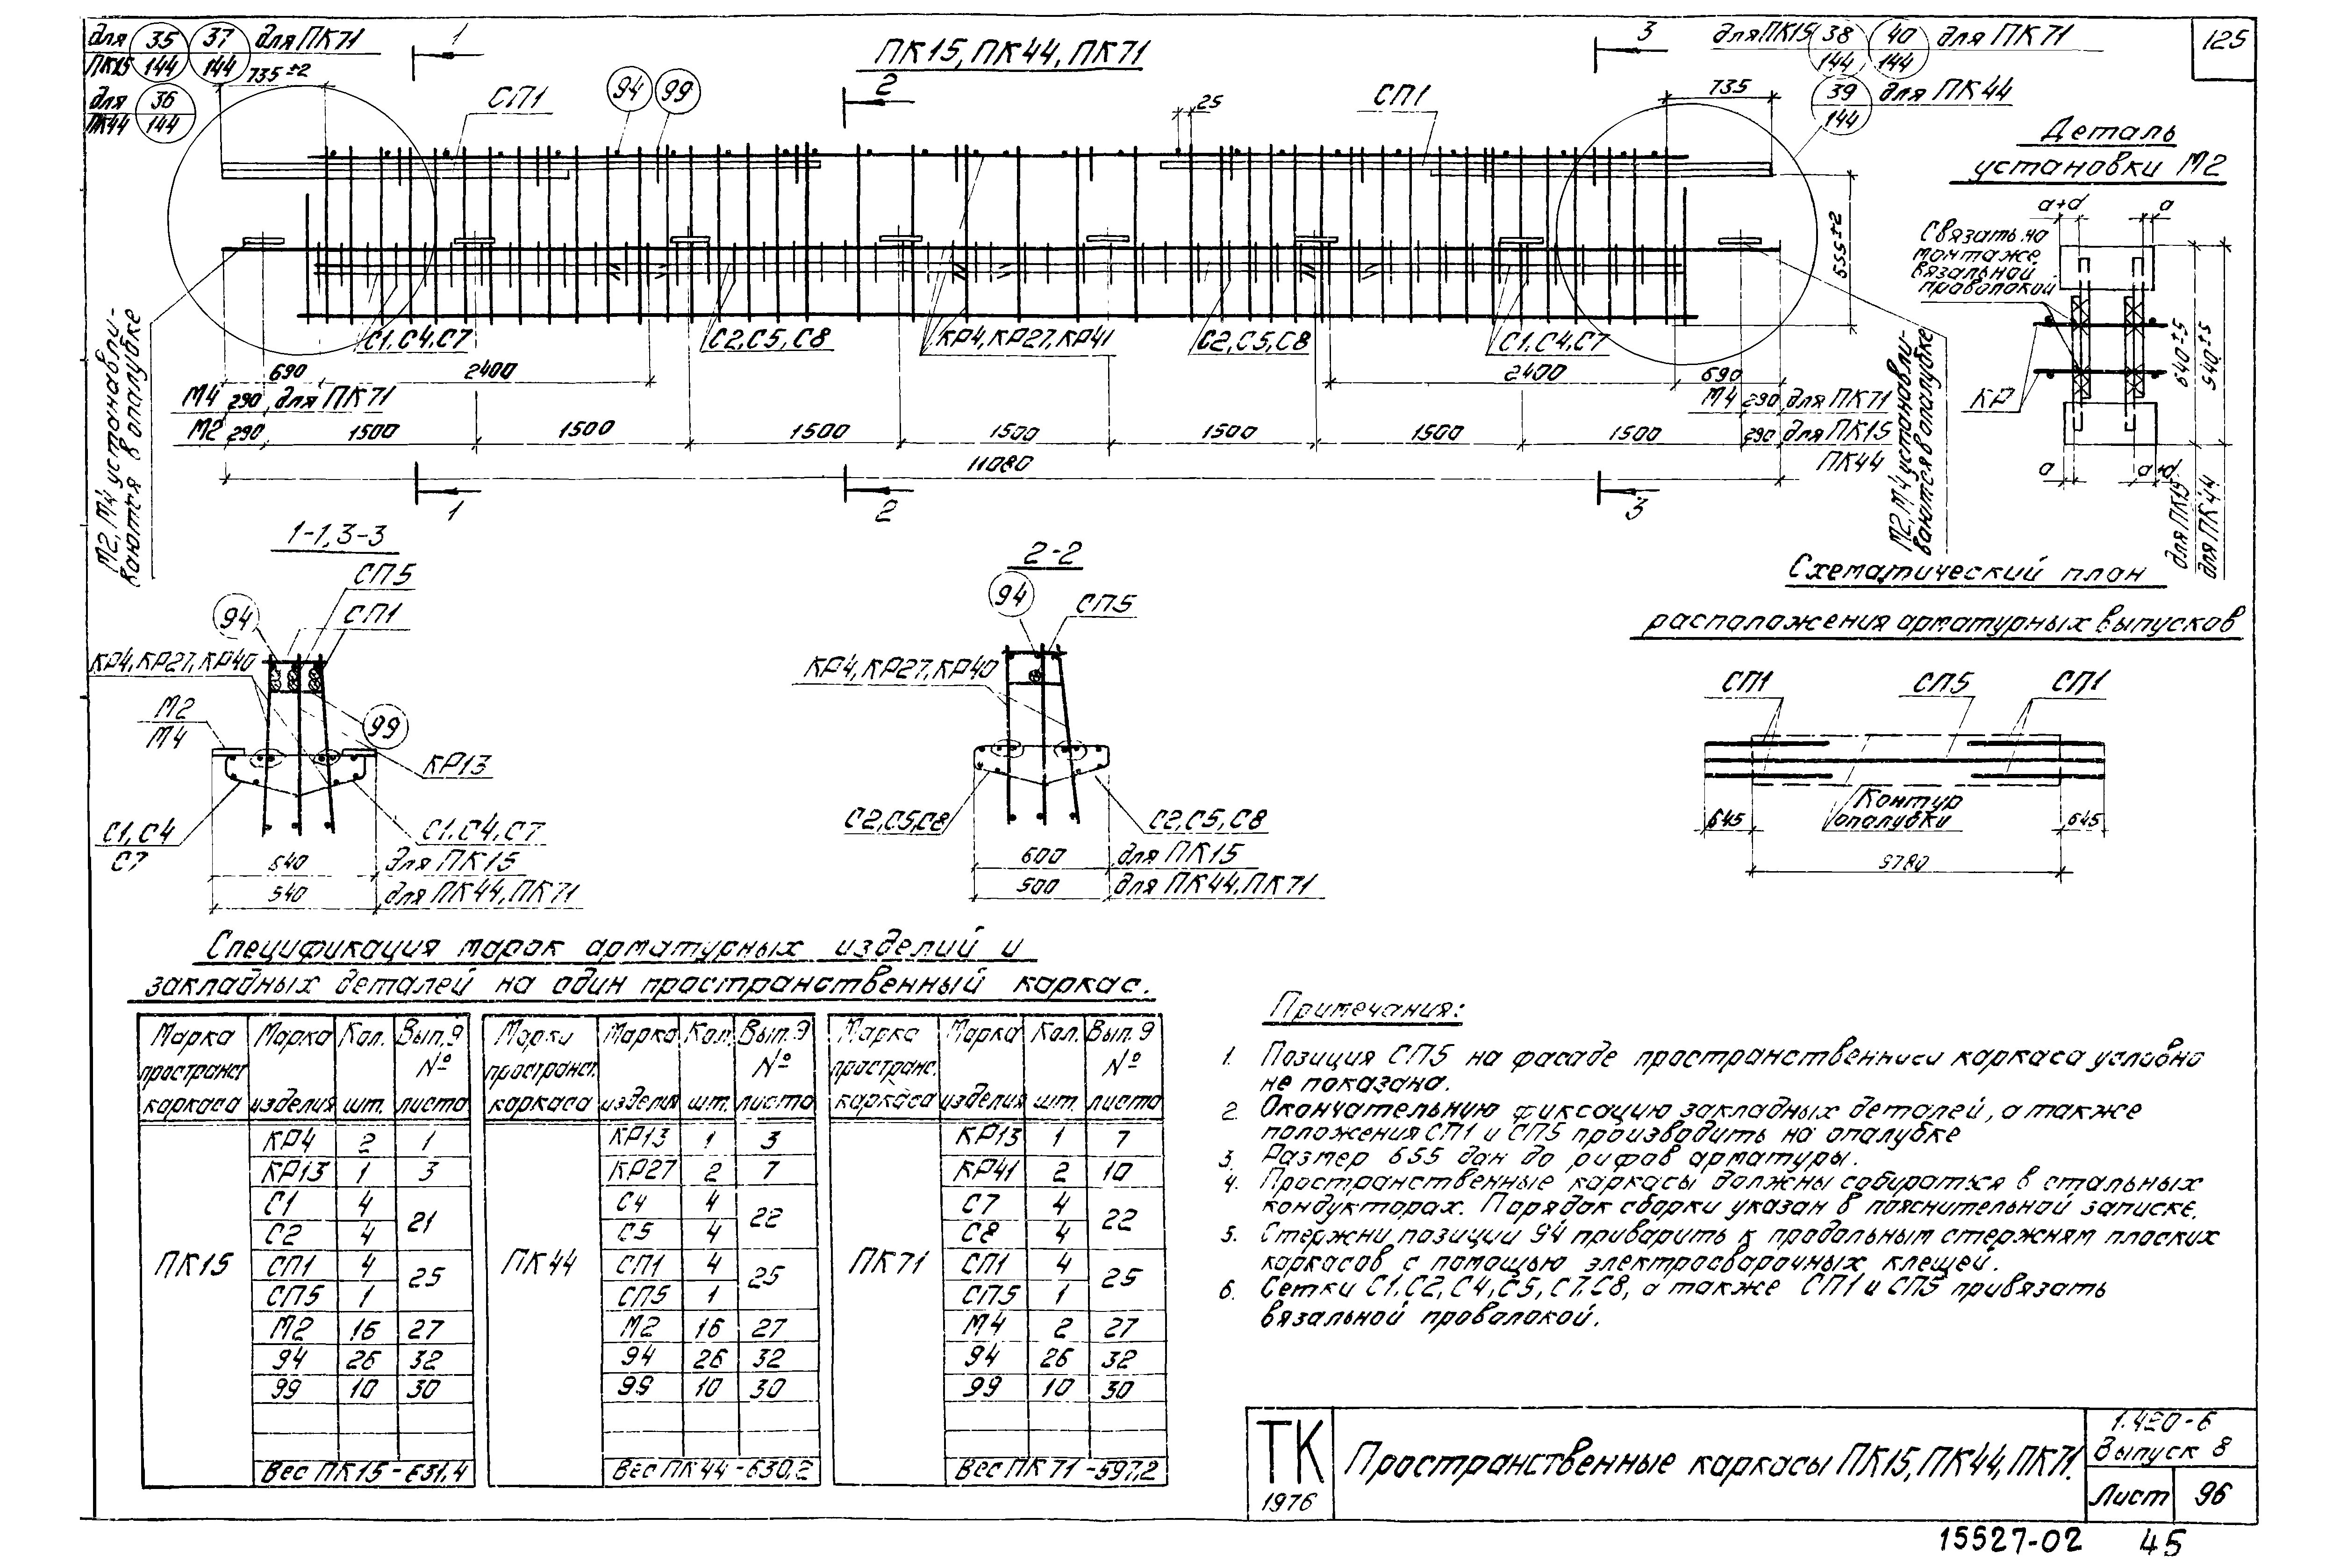 для 35 37 для ПК71
ПК15 144 144
для 36
ПК44 144
735±2
1
СП1
94 99
ПК15, ПК44, ПК71
2
25
СП1
3
для ПК15 38 40 для ПК71
144 144
735
39 для ПК44
144
125
Деталь
установки М2
а+d
а
Связать на
монтаже
вязальной
проволокой
КР
а
а+d
640±5
940±5
для ПК15
для ПК44
655±2
М2, М4 устанавли-
ваются в опалубке
С1, С4, С7
С2, С5, С8
КР4, КР27, КР41
С2, С5, С8
С1, С4, С7
М2, М4 устанавли-
ваются в опалубке
690
2400
2400
690
М4 290 для ПК71
М4 290 для ПК71
М2 290 1500 1500 1500 1500 1500 1500 1500 290 для ПК15
ПК44
11080
1
2
3
1-1, 3-3
СП5
94
СП1
КР4, КР27, КР40
М2
М4
99
КР13
С1, С4
С7
С1, С4, С7
640 для ПК15
540 для ПК44, ПК71
2-2
94
СП5
КР4, КР27, КР40
С2, С5, С8
С2, С5, С8
600 для ПК15
500 для ПК44, ПК71
Схематический план
расположения арматурных выпусков
СП1 СП5 СП1
Контур
опалубки
645
645
9780
Спецификация марок арматурных изделий и
закладных деталей на один пространственный каркас.
Марка Марка Кол. Вып. 9
пространст. №
каркаса изделия шт. листа
КР4 2 1
КР13 1 3
С1 4
21
С2 4
ПК15
СП1 4
25
СП5 1
М2 16 27
94 26 32
99 10 30
Вес ПК15 - 631,4
Марки Марка Кол. Вып. 9
пространст. №
каркаса изделия шт. листа
КР13 1 3
КР27 2 7
С4 4
22
С5 4
ПК44
СП1 4
25
СП5 1
М2 16 27
94 26 32
99 10 30
Вес ПК44 - 630,2
Марка Марка Кол. Вып. 9
пространс. №
каркаса изделия шт. листа
КР13 1 7
КР41 2 10
С7 4
22
С8 4
ПК71
СП1 4
25
СП5 1
М4 2 27
94 26 32
99 10 30
Вес ПК71 - 597,2
Примечания:
1. Позиция СП5 на фасаде пространственного каркаса условно
не показана.
2. Окончательную фиксацию закладных деталей, а также
положения СП1 и СП5 производить на опалубке
3. Размер 655 дан до рифов арматуры.
4. Пространственные каркасы должны собираться в стальных
кондукторах. Порядок сборки указан в пояснительной записке.
5. Стержни позиций 94 приварить к продольным стержням плоских
каркасов с помощью электросварочных клещей.
6. Сетки С1, С2, С4, С5, С7, С8, а также СП1 и СП5 привязать
вязальной проволокой.
ТК
1976
Пространственные каркасы ПК15, ПК44, ПК71.
1.420-6
Выпуск 8
Лист 96
15527-02 45